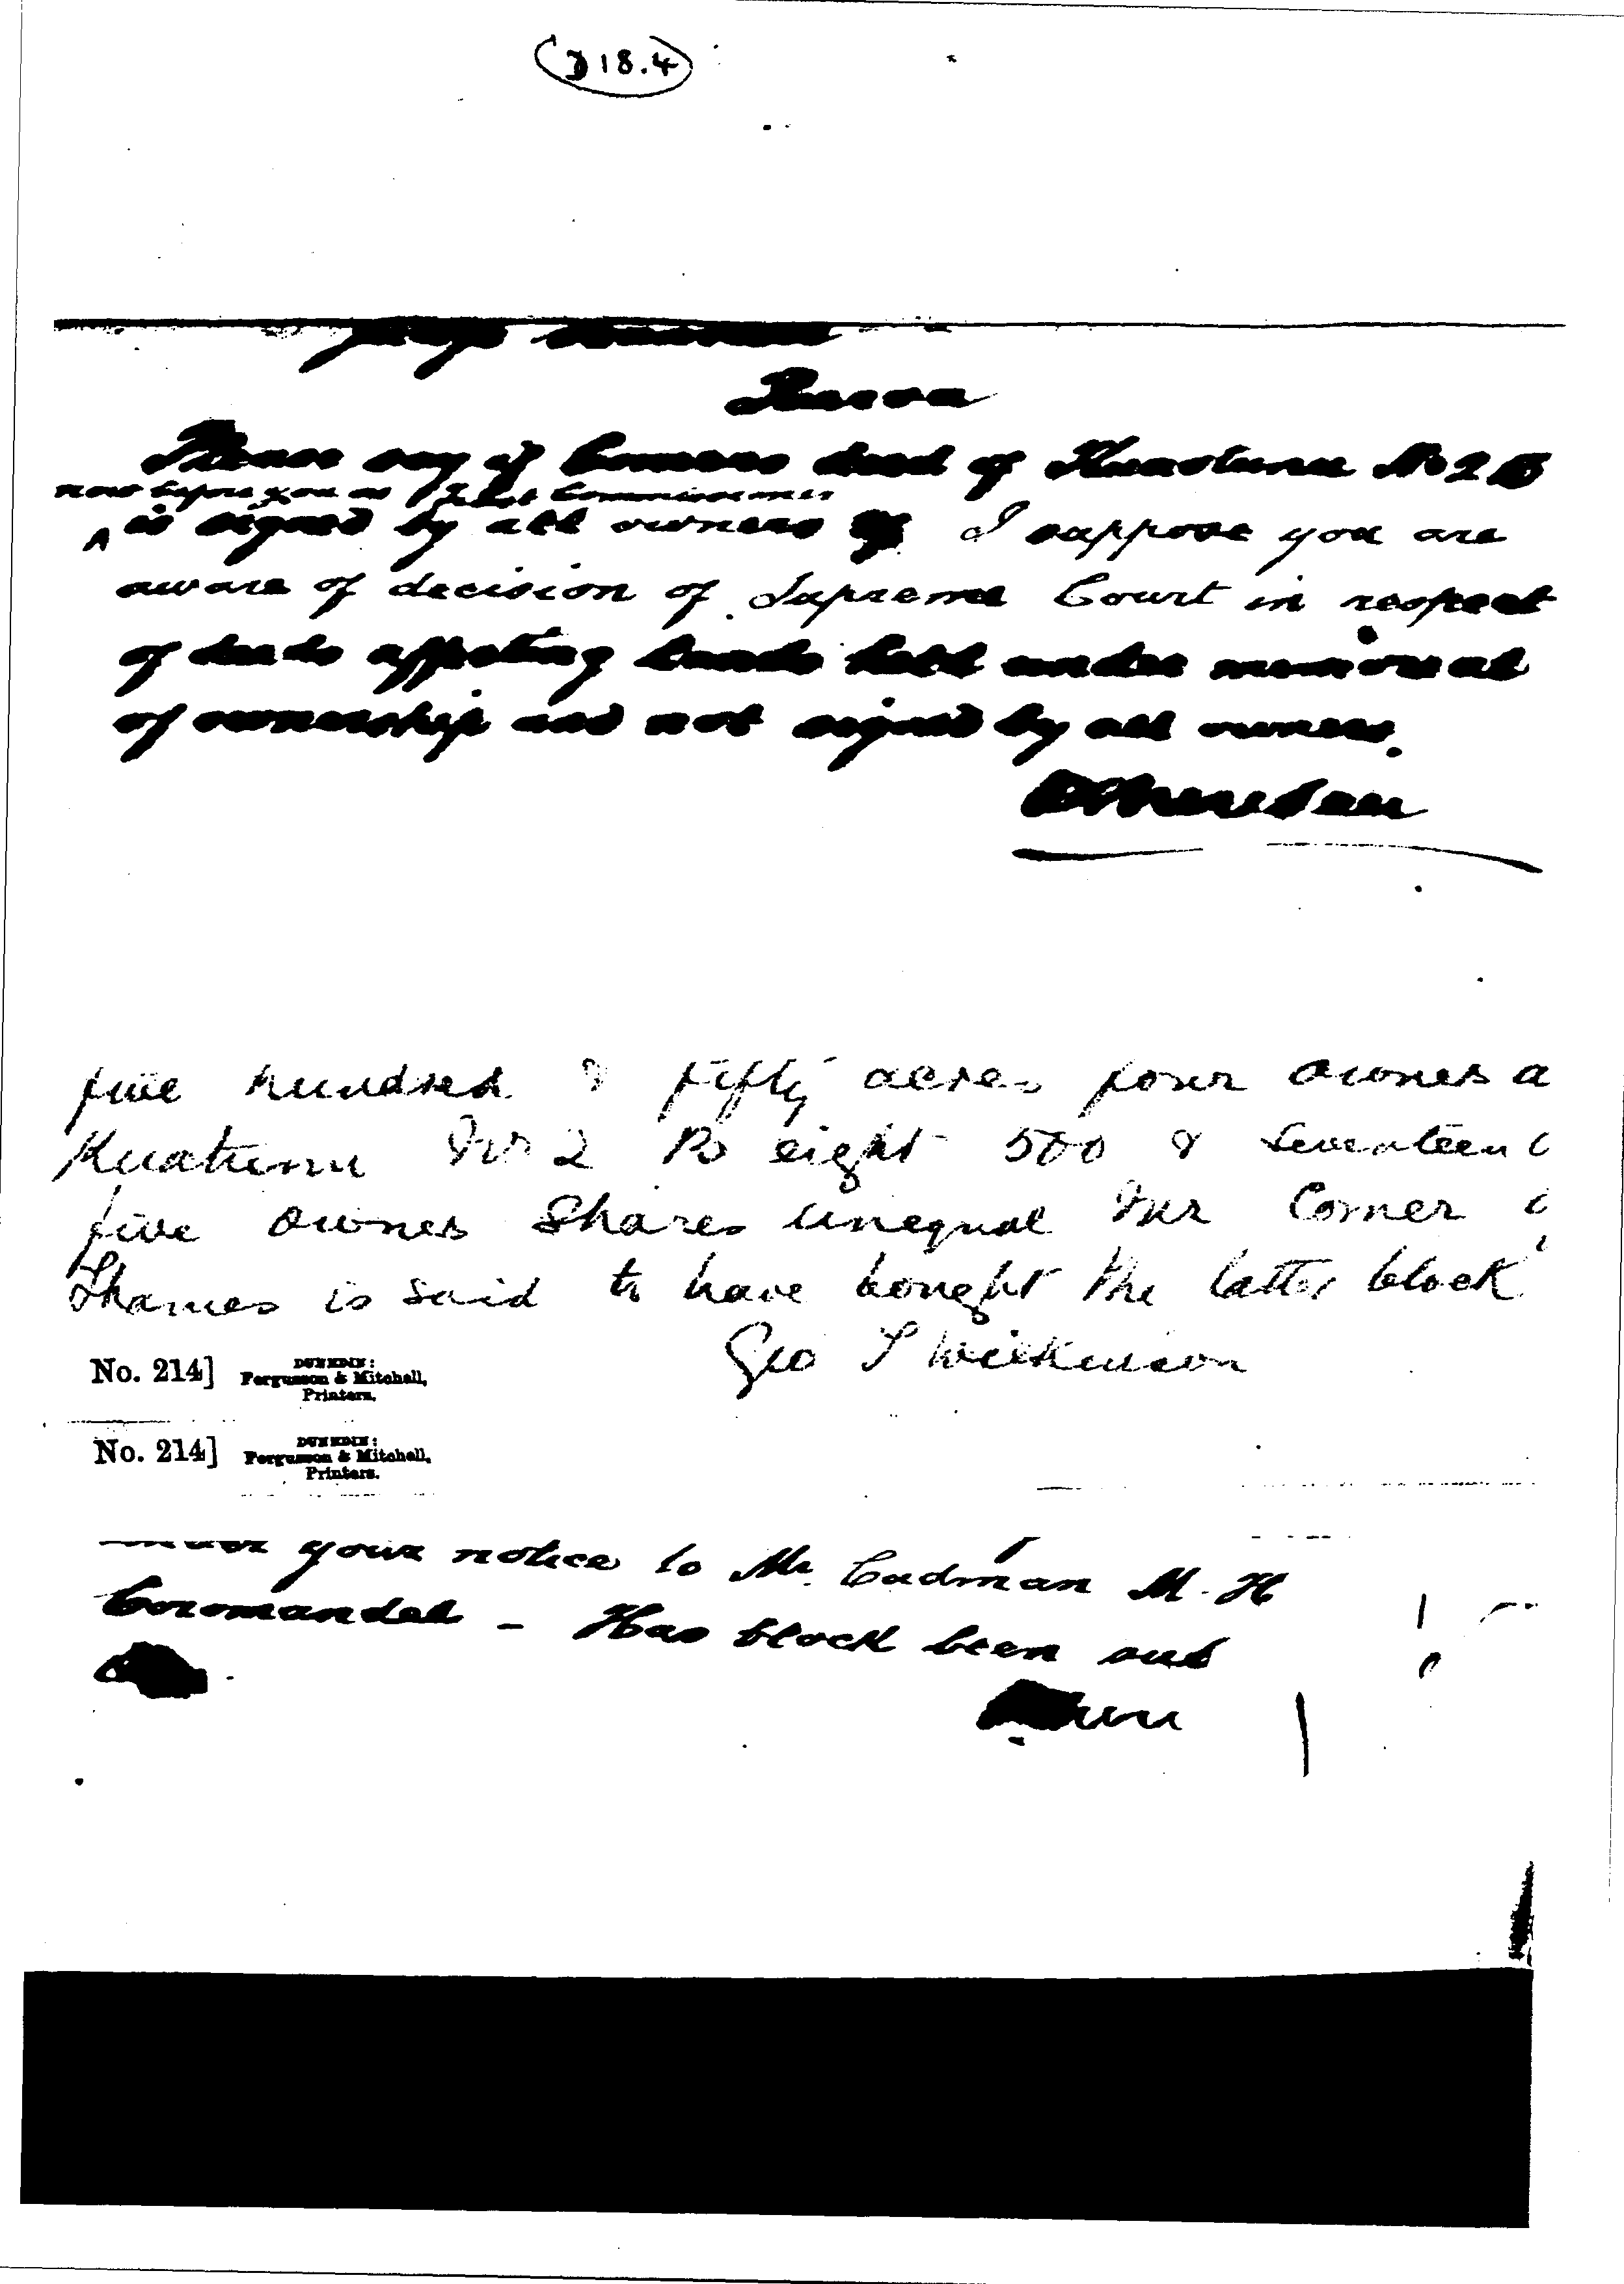 (D 18.4)
Please say if Corners deed of Kuaotunu No 2 B
now before you as Trust Commissioner
is signed by all owners I suppose you are
aware of decision of Supreme Court in respect
of deeds affecting lands held under memorial
of ownership and not signed by all owners.
five hundred & fifty acres four owners a
Kuatunu No 2 B eight 500 & seventeen
five owners Shares unequal Mr Corner
Thames is said to have bought the latter block
Geo T Wilkinson
No. 214] DUNEDIN:
Fergusson & Mitchell,
Printers.
No. 214] DUNEDIN:
Fergusson & Mitchell,
Printers.
your notice to Mr. Cadman M. H
Coromandel - Has block been sub